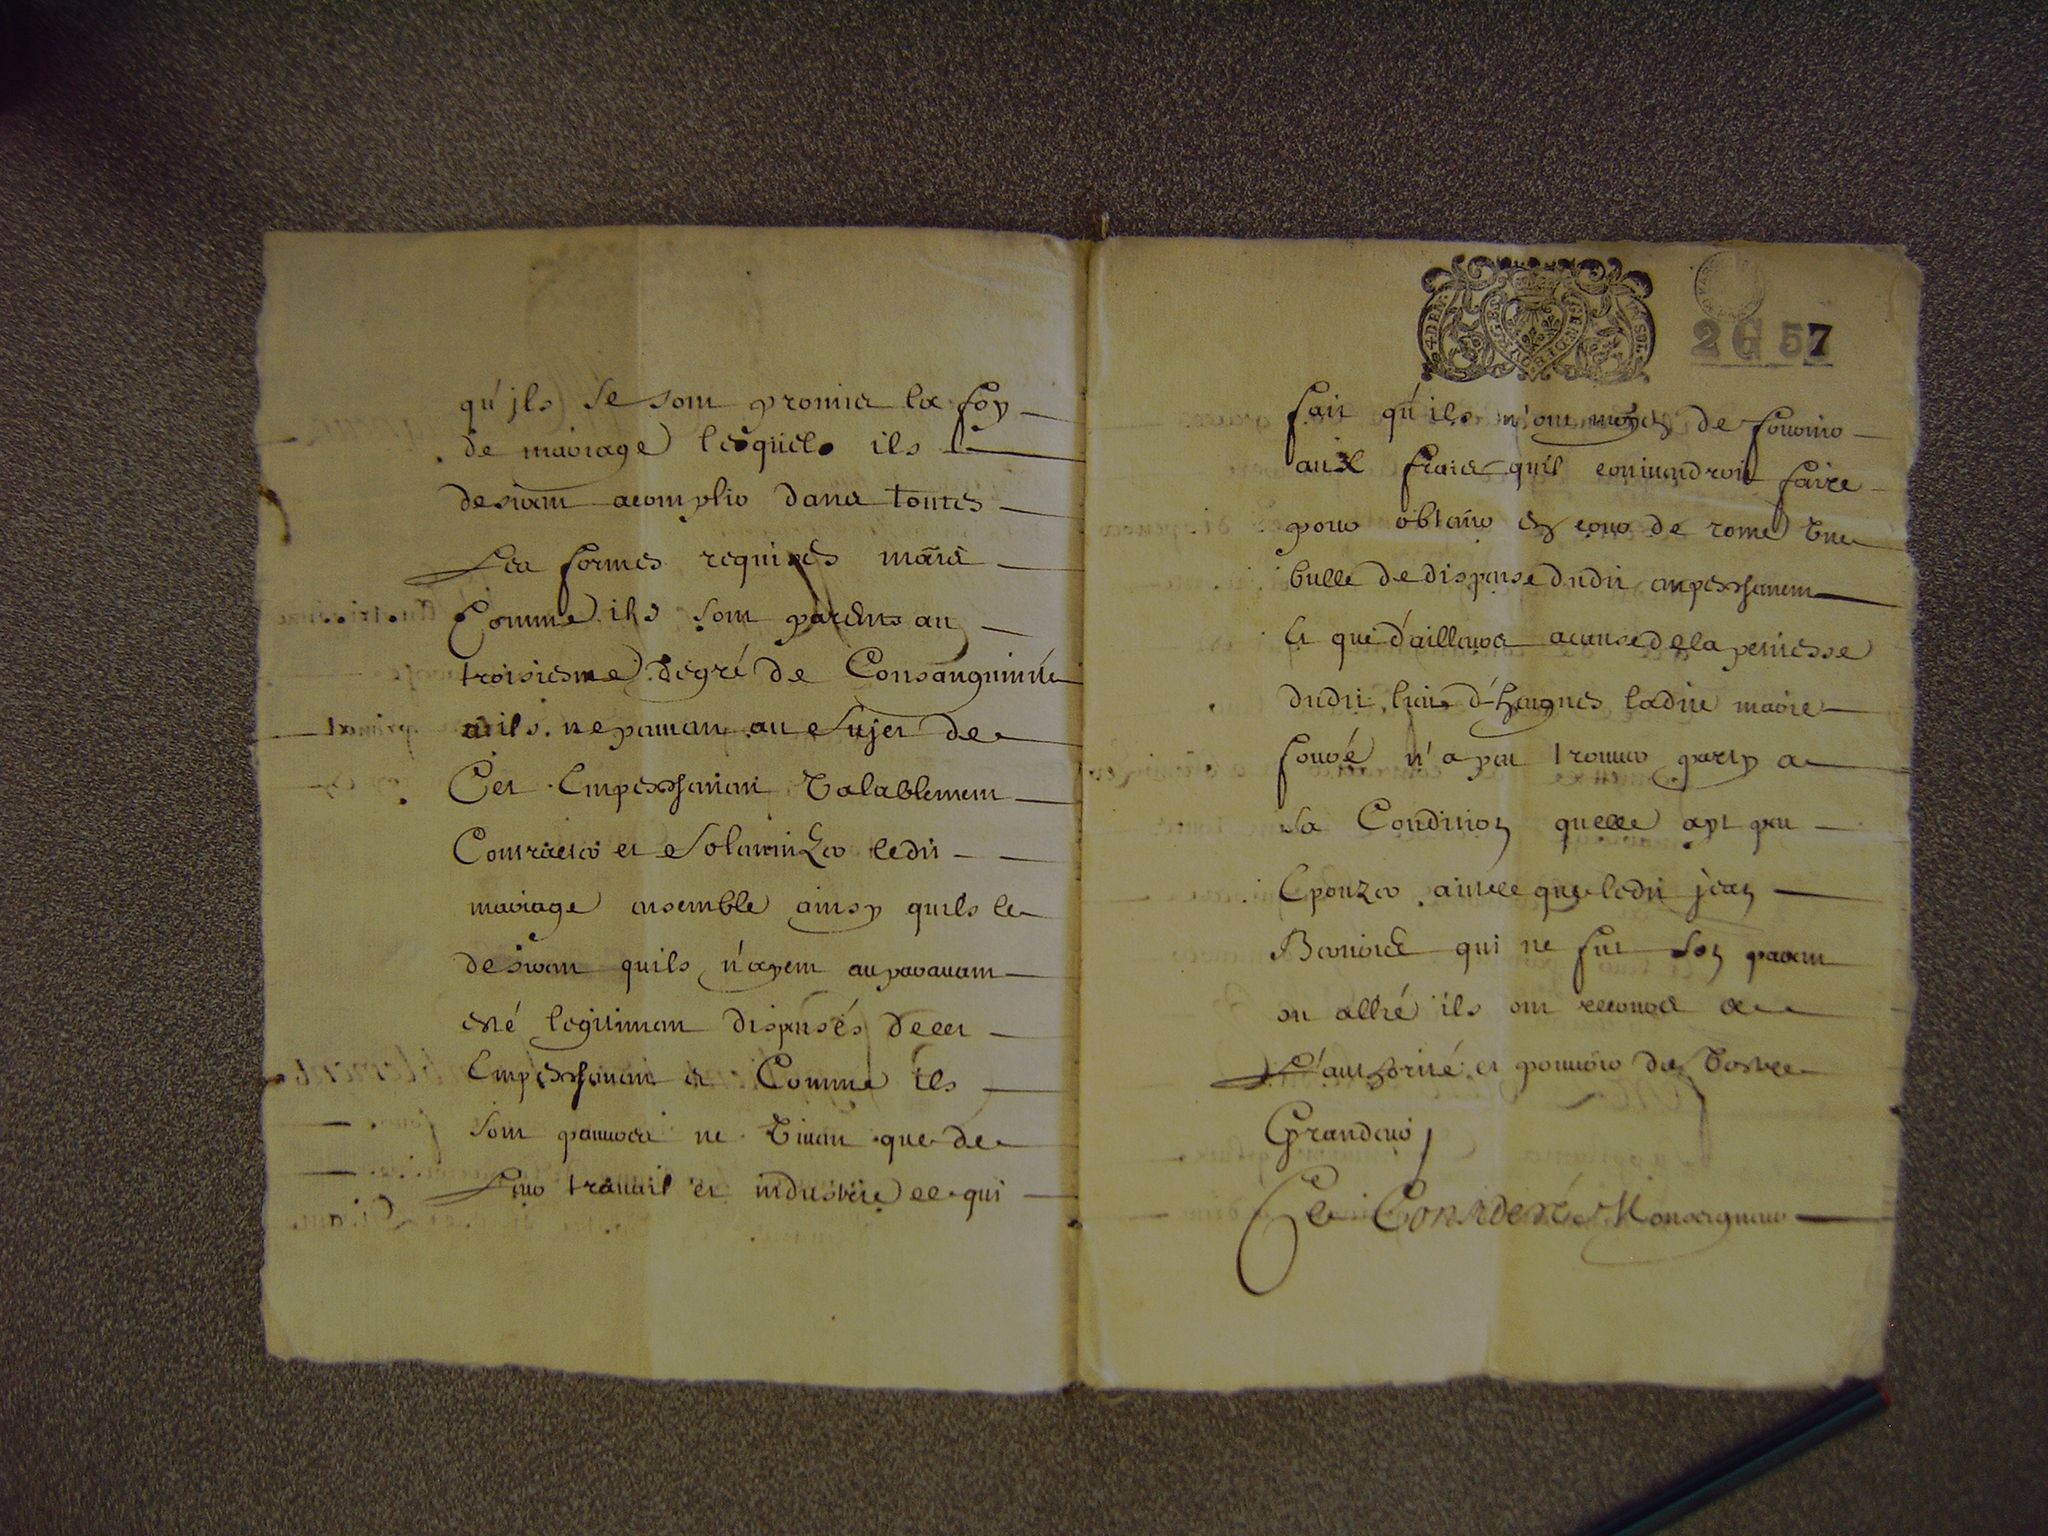 qu'jls se sont promis la foy
de mariage lesquels ils
desirant acomplir dans toutes
les formes requises mais
Comme ils sont parents au
troisiesme degré de Consanguinité
qu'ils ne peuvent au sujet de
Cet Empeschement Valablement
Contracter et Solemnizer ledit
mariage ensemble ainsy quils le
desirent quils n'ayent auparavant
esté legitiment dispensés de cet
Empeschement et Comme ils
sont pauvres ne Vivant que de
leur travail et industrie ce qui
2 G 57
4 DEN
fait qu'ils n'ont moyen de fournir
aux frais quil conviendroit faire
pour obtenir en cour de rome Une
bulle de dispense dudit empeschement
Et que d'ailleurs a cause de la petitesse
dudit lieu d' ladite marie
n'a peu trouver party a
sa Condition quelle ayt peu
Epouzer autre que ledit jean
qui ne fut son parent
ou allié ils ont recours a
L'authorité et pouvoir de Vostre
Grandeur
Ce Consideré Monseigneur